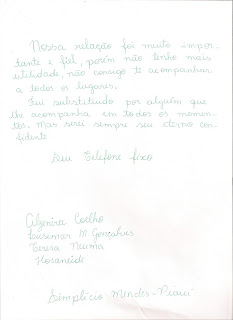 Nossa relação foi muito impor-
tante e fiel, porém não tenho mais
utilidade, não consigo te acompanhar
a todos os lugares.
Fui substituído por alguém que
lhe acompanha em todos os momen-
tos. Mas serei sempre seu eterno con-
fidente
Seu Telefone fixo
Algenira Coelho
Lusemar M. Gonçalves
Teresa Nuema
Hosaneide
Simplício Mendes-Piauí